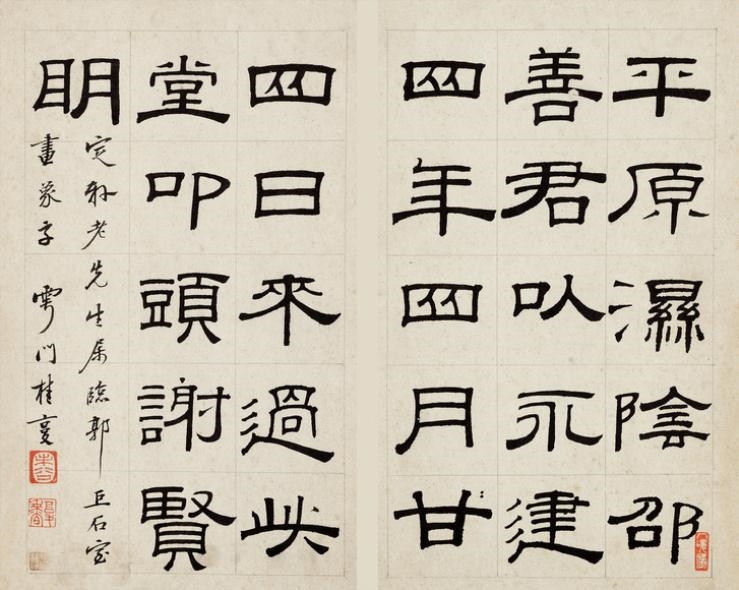 平原濕陰邵
善君以永建
四年四月廿
四日來過此
堂叩頭謝賢
明
定軒老先生屬臨郭巨石室
畫象字 雩門桂馥